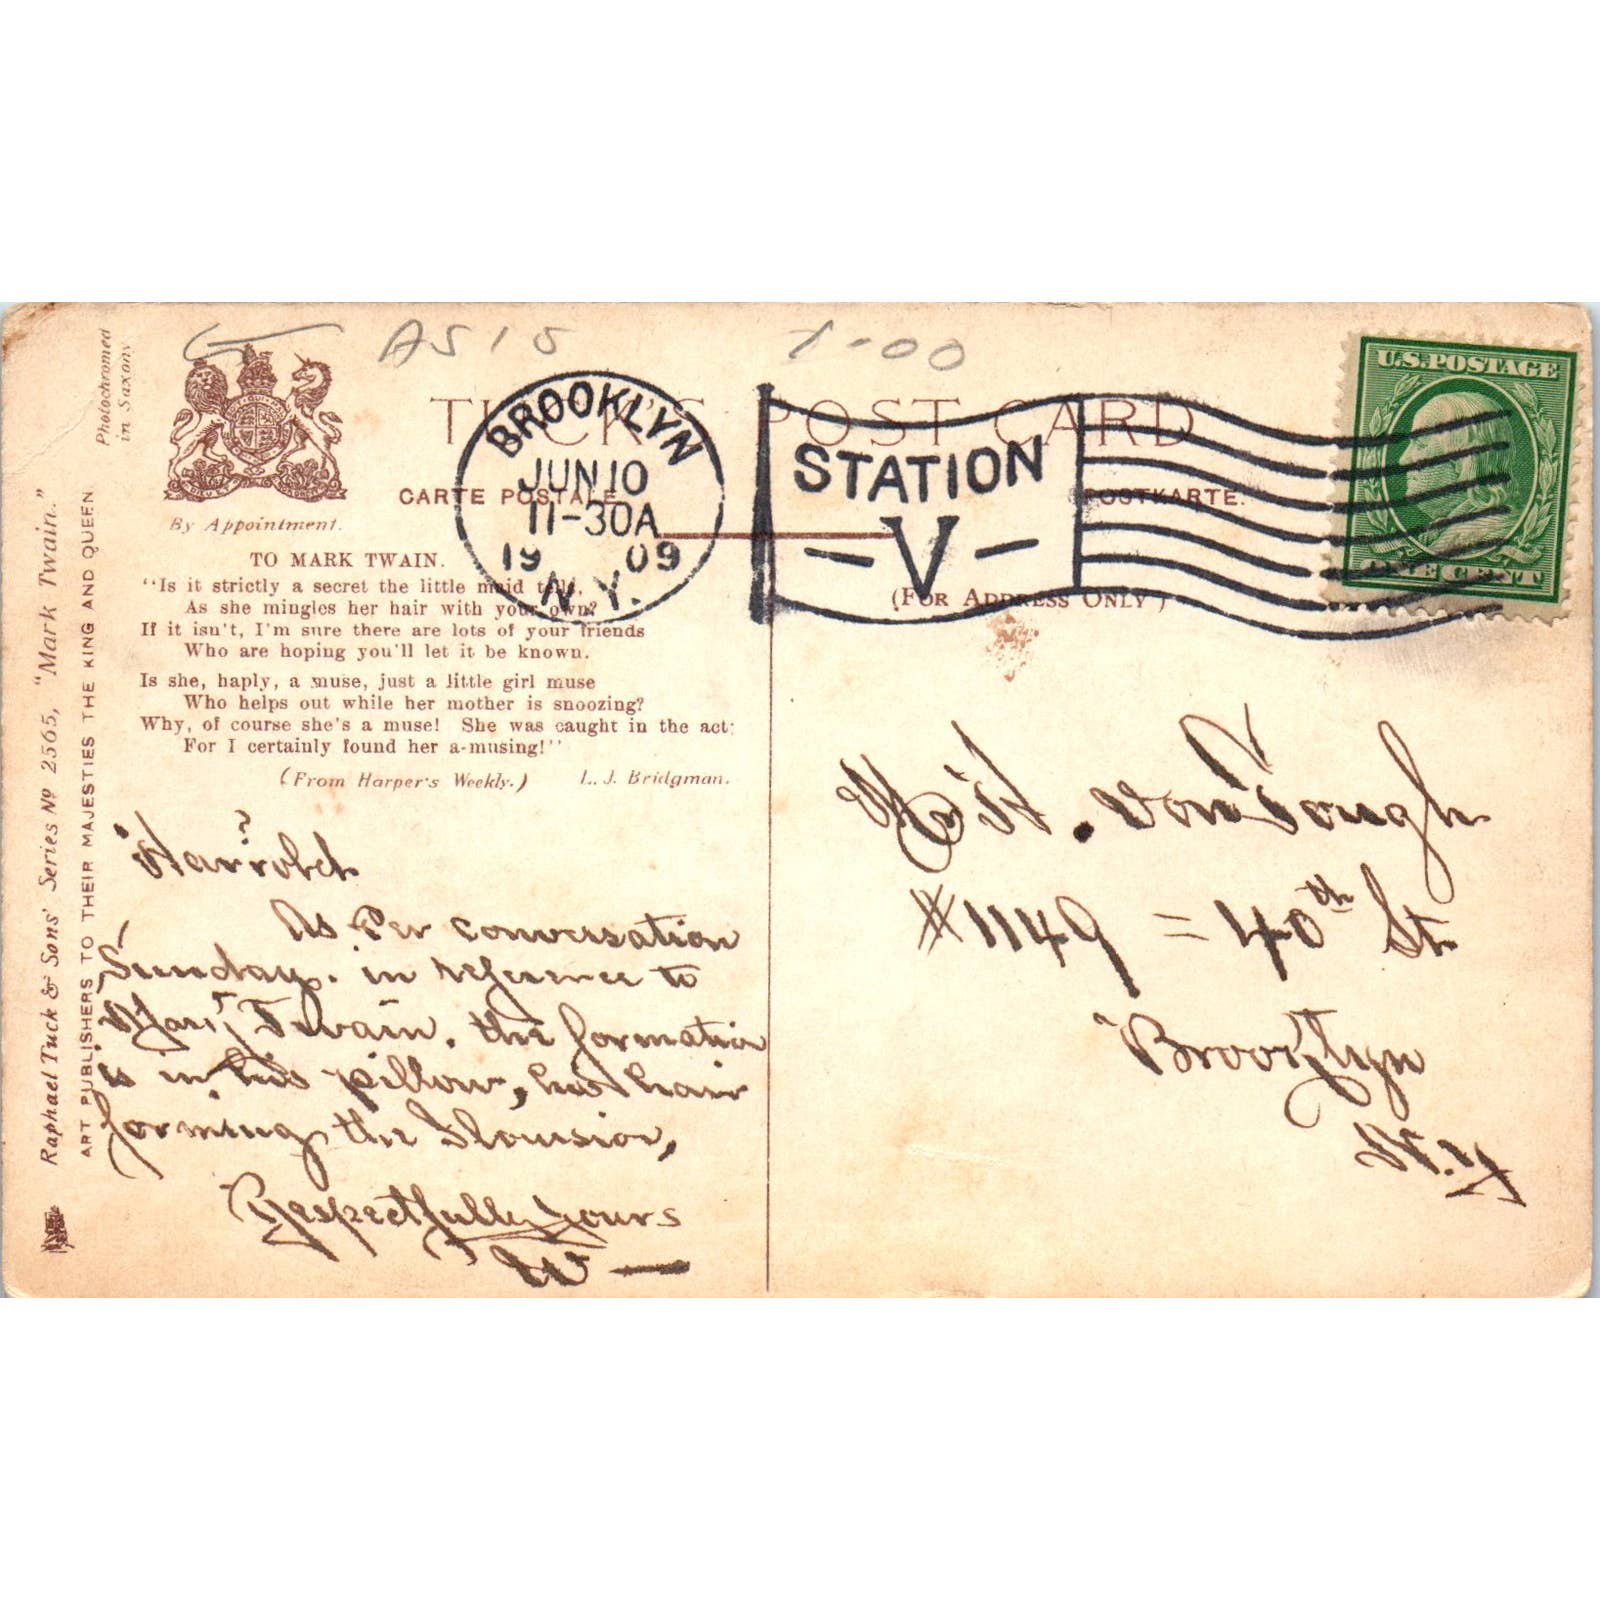 Photochromed
in Saxony
Raphael Tuck & Sons' Series No 2565, "Mark Twain."
ART PUBLISHERS TO THEIR MAJESTIES THE KING AND QUEEN
AS 15
1-00
TUCK'S POST CARD
CARTE POSTALE
POSTKARTE.
By Appointment.
(FOR ADDRESS ONLY)
BROOKLYN
JUN 10
11-30A
19 09
N.Y.
STATION
- V -
U.S. POSTAGE
ONE CENT
TO MARK TWAIN.
"Is it strictly a secret the little maid tells,
As she mingles her hair with your own?
If it isn't, I'm sure there are lots of your friends
Who are hoping you'll let it be known.
Is she, haply, a muse, just a little girl muse
Who helps out while her mother is snoozing?
Why, of course she's a muse! She was caught in the act:
For I certainly found her a-musing!"
(From Harper's Weekly.) L. J. Bridgman.
As Per conversation
Sunday. in reference to
Mark Twain. the formation
is in his pillow, his hair
forming the
Respectfully Yours
W —
#1149 = 40th St.
Brooklyn
N.Y.